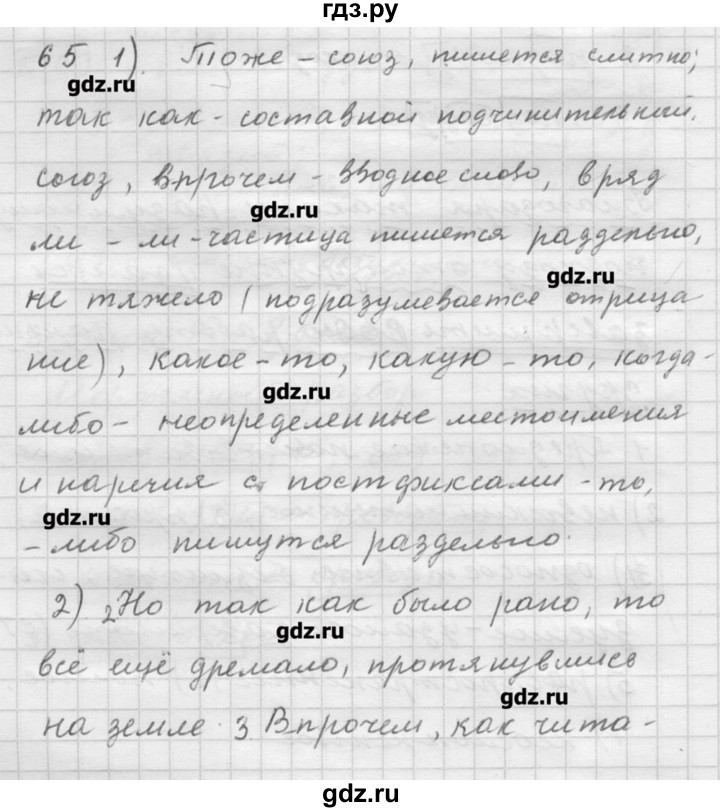 гдз.ру
65 1). Тоже – союз, пишется слитно;
gdz.ru
так как – составной подчинительный.
союз, впрочем – вводное слово, в ряд
gdz.ru
ли – ли – частица пишется раздельно,
gdz.ru
не тяжело ( подразумевается отрица
ние), какое – то, какую – то, когда –
gdz.ru
либо – неопределенные местоимения
и наречия с постфиксами – то,
gdz.ru
– либо пишутся раздельно.
2) 2 Но так как было рано, то
gdz.ru
всё ещё дремало, протянувшись
gdz.ru
на земле. 3 Впрочем, как чита –
gdz.ru